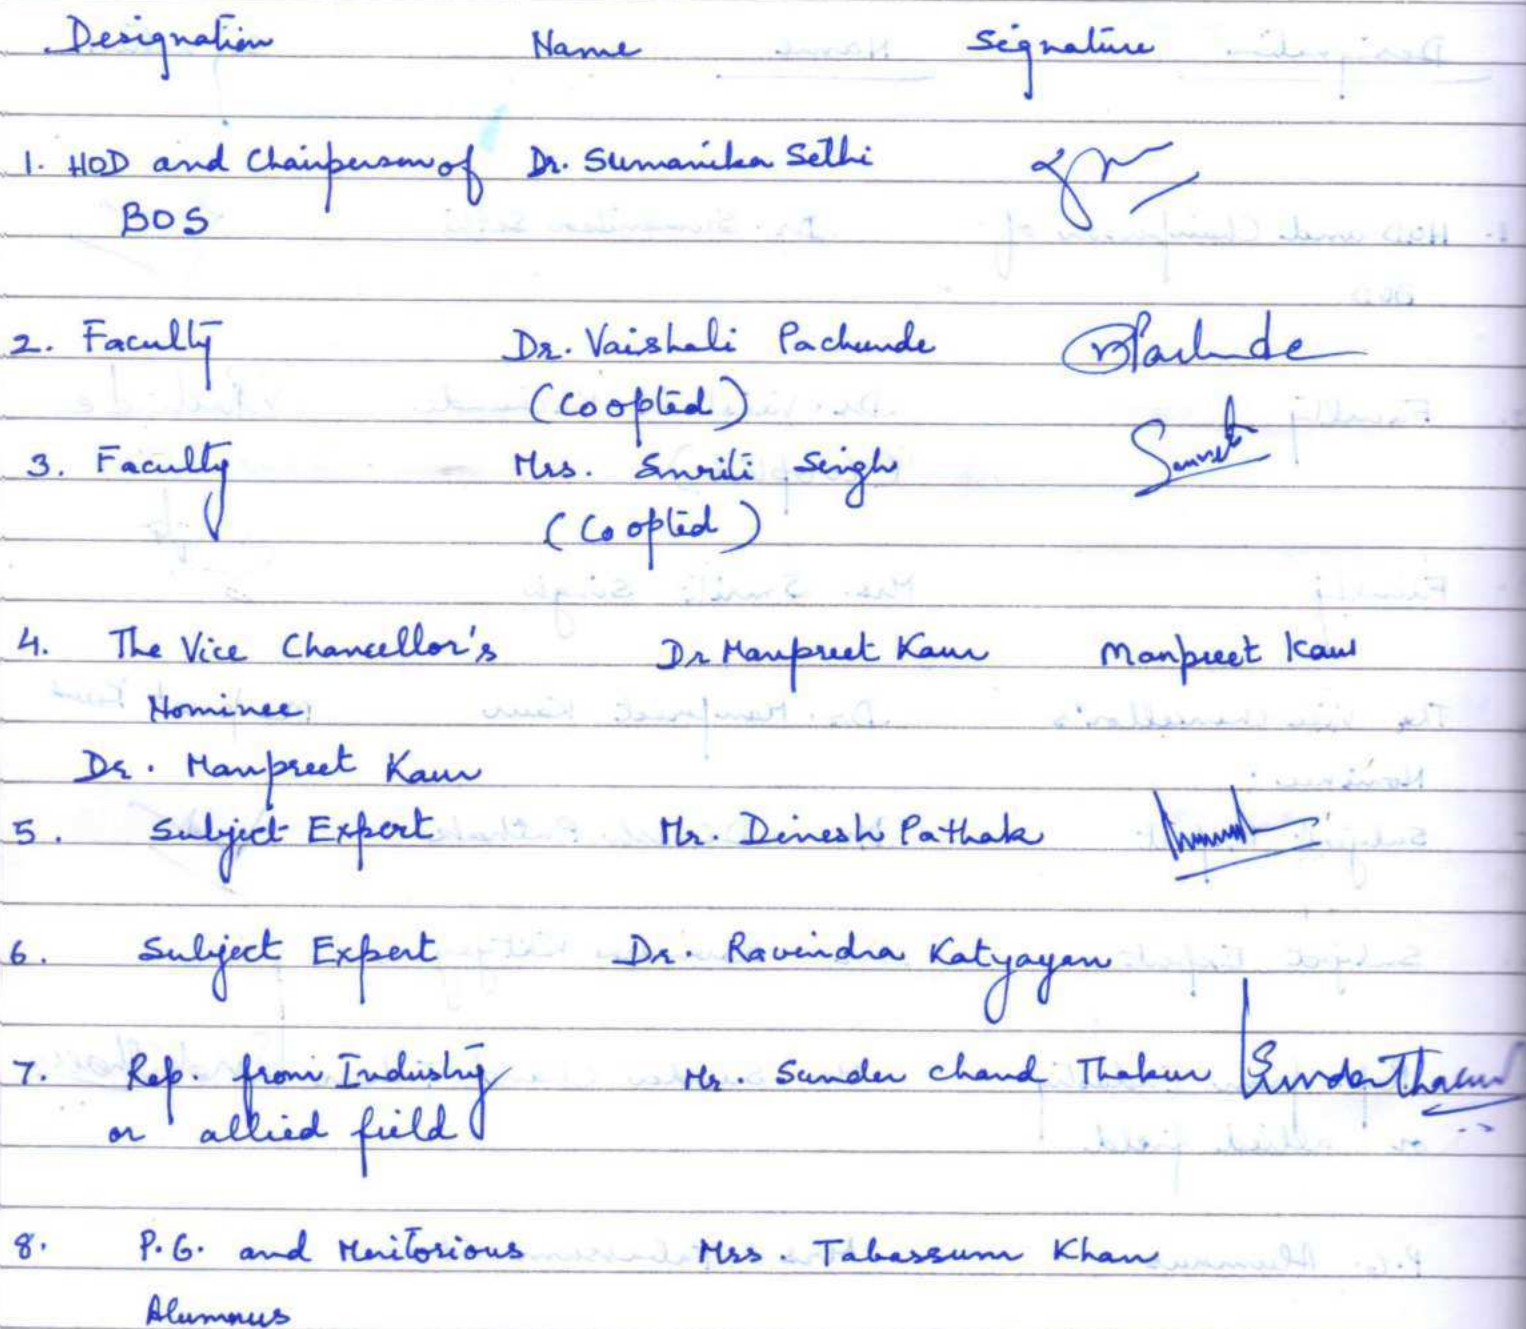 Designation Name Signature
1. HOD and Chairperson of Dr. Sumanika Sethi
BOS
2. Faculty Dr. Vaishali Pachunde
(Coopted)
3. Faculty Mrs. Smriti Singh
(Coopted)
4. The Vice Chancellor's Dr Manpreet Kaur Manpreet Kaur
Nominee
Dr. Manpreet Kaur
5. Subject Expert Mr. Dinesh Pathak
6. Subject Expert Dr. Ravindra Katyayan
7. Rep. from Industry Mr. Sunder chand Thakur
or allied field
8. P.G. and Meritorious Mrs. Tabassum Khan
Alumnus